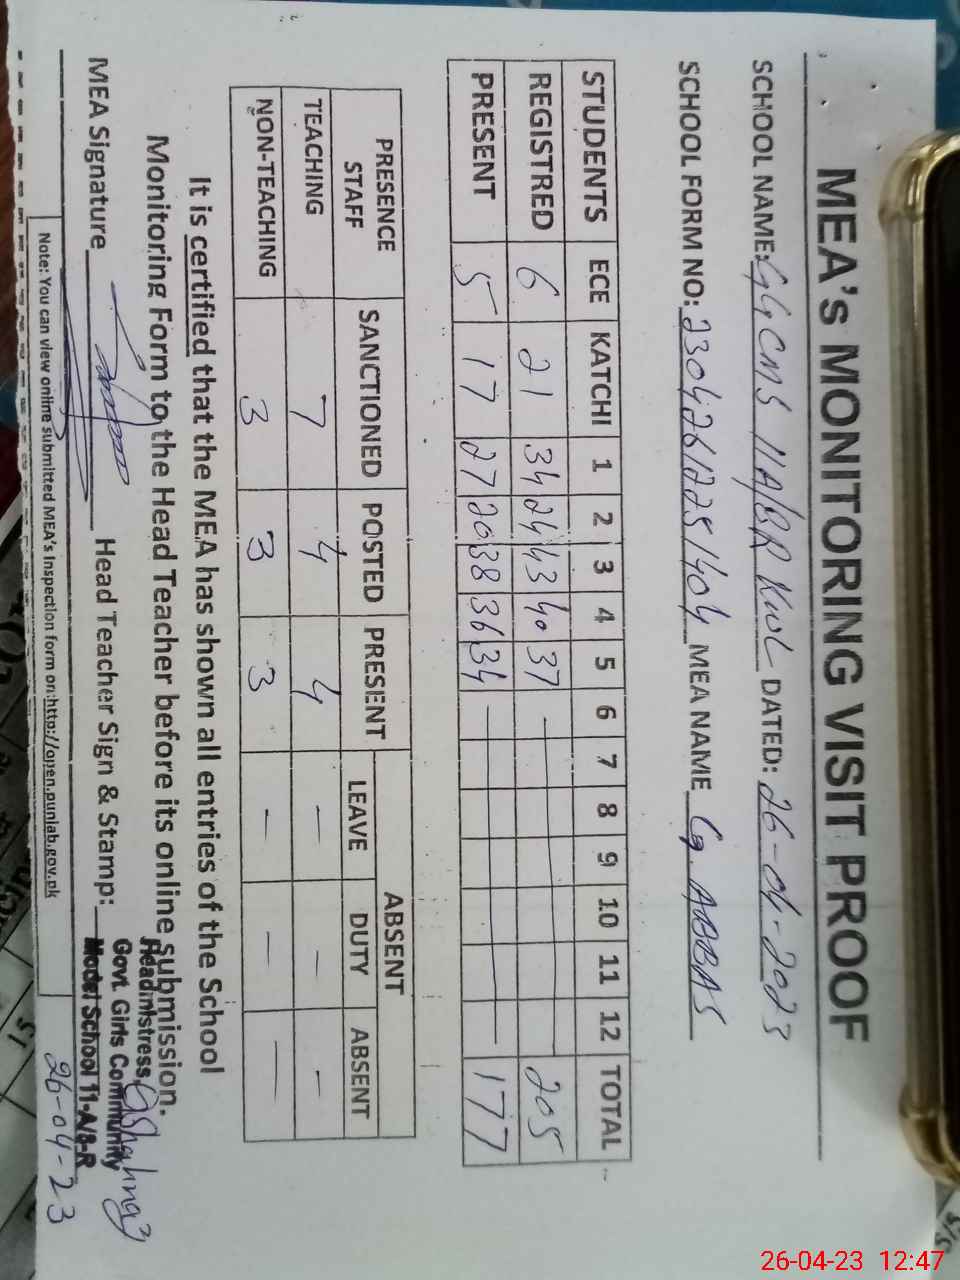 MEA's MONITORING VISIT PROOF
SCHOOL NAME: GGCMS 11A/8R KWL DATED: 26-04-2023
SCHOOL FORM NO: 23042612251404 MEA NAME Q. ABBAS
STUDENTS ECE KATCHI 1 2 3 4 5 6 7 8 9 10 11 12 TOTAL
REGISTRED 6 21 34 24 43 40 37 — 205
PRESENT 5 17 27 20 38 36 34 — 177
PRESENCE STAFF SANCTIONED POSTED PRESENT ABSENT
LEAVE DUTY ABSENT
TEACHING 7 4 4 — — —
NON-TEACHING 3 3 3 — — —
It is certified that the MEA has shown all entries of the School
Monitoring Form to the Head Teacher before its online submission.
MEA Signature Head Teacher Sign & Stamp:
Headmistress
Govt. Girls Community
Model School 11-A/8-R
26-04-23
Note: You can view online submitted MEA's Inspection form on:http://open.punjab.gov.pk
15
5/5
26-04-23 12:47